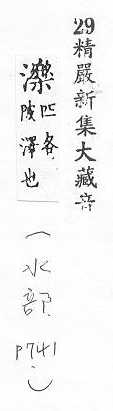 29精嚴新集大藏音
濼
匹各
陂澤也
（水部 P741）